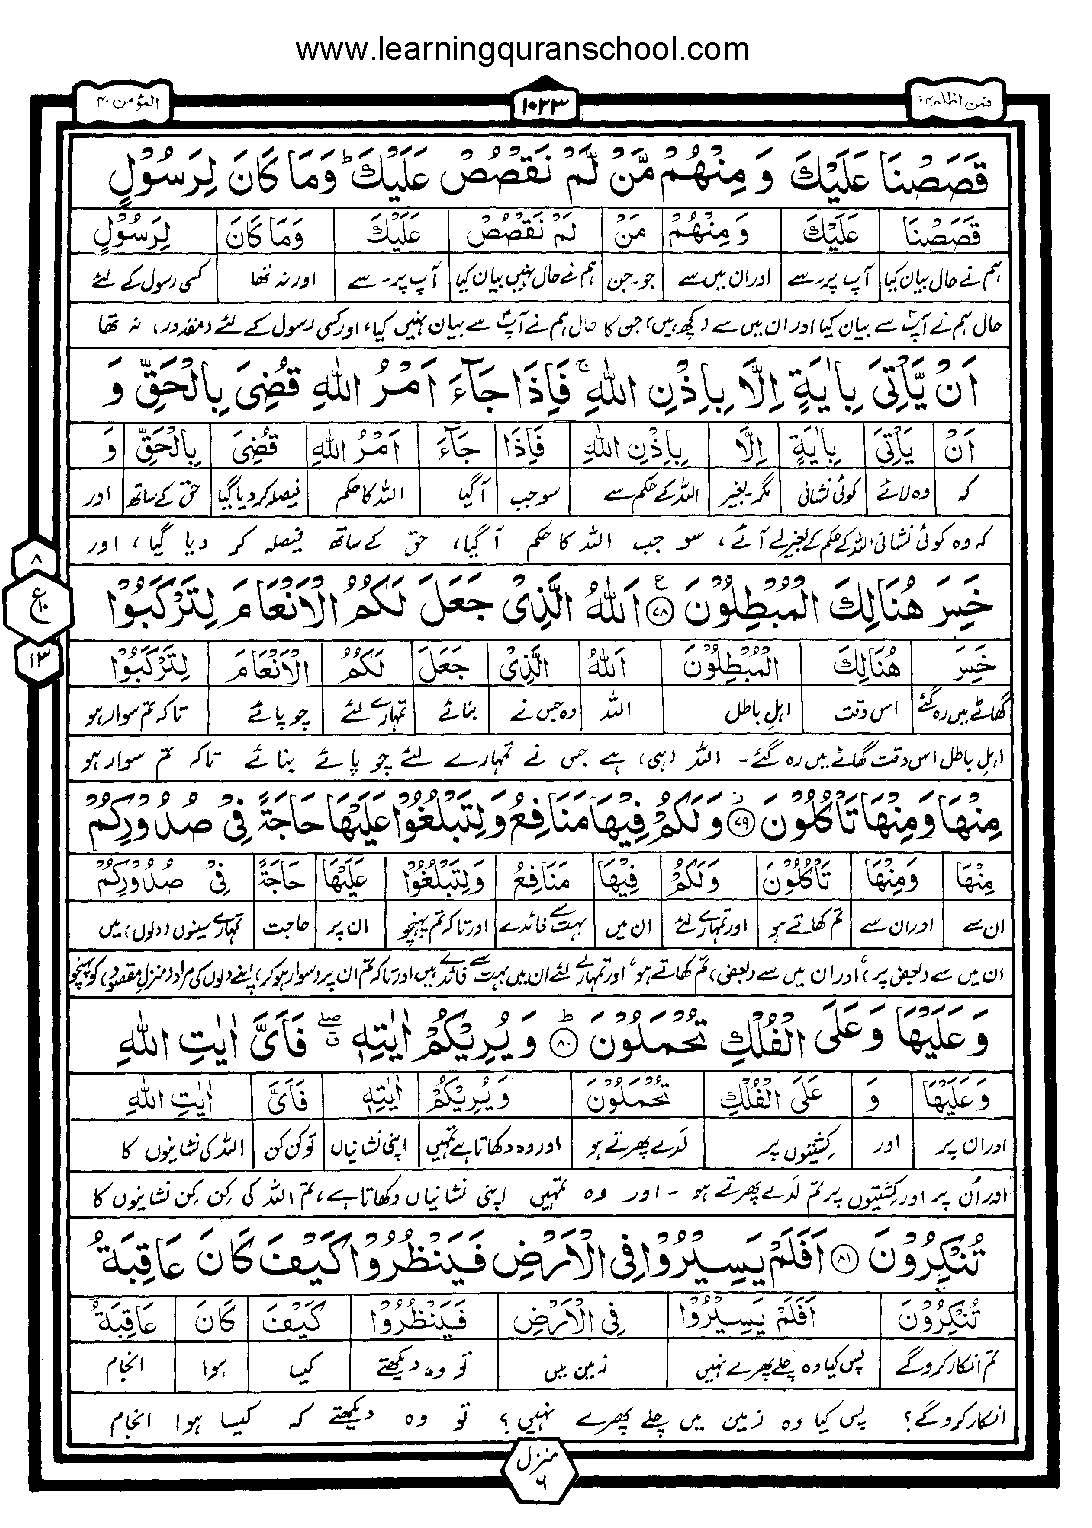 www.learningquranschool.com
المؤمن ۴۰ ۱۰۲۳ فمن اظلم ۲۴
قَصَصْنَا عَلَيْكَ وَ مِنْهُمْ مَّنْ لَّمْ نَقْصُصْ عَلَيْكَ ؕ وَمَا كَانَ لِرَسُوْلٍ
قَصَصْنَا عَلَيْكَ وَ مِنْهُمْ مَنْ لَمْ نَقْصُصْ عَلَيْكَ وَمَا كَانَ لِرَسُوْلٍ
ہم نے حال بیان کیا آپ پر۔سے اور ان میں سے جو۔جن ہم نے حال نہیں بیان کیا آپ پر۔سے اور نہ تھا کسی رسول کے لئے
حال ہم نے آپؐ سے بیان کیا اور ان میں سے (کچھ ہیں) جن کا حال ہم نے آپؐ سے بیان نہیں کیا، اور کسی رسول کے لئے (مقدور) نہ تھا
اَنْ يَّاْتِىَ بِاٰيَةٍ اِلَّا بِاِذْنِ اللّٰهِ ۚ فَاِذَا جَآءَ اَمْرُ اللّٰهِ قُضِىَ بِالْحَقِّ وَ
اَنْ يَاْتِىَ بِاٰيَةٍ اِلَّا بِاِذْنِ اللّٰهِ فَاِذَا جَآءَ اَمْرُ اللّٰهِ قُضِىَ بِالْحَقِّ وَ
کہ وہ لائے کوئی نشانی مگر۔بغیر اللہ کے حکم سے سو جب آگیا اللہ کا حکم فیصلہ کر دیا گیا حق کے ساتھ اور
کہ وہ کوئی نشانی اللہ کے حکم کے بغیر لے آئے، سو جب اللہ کا حکم آ گیا، حق کے ساتھ فیصلہ کر دیا گیا، اور
۸
ع ۱۰
۱۳
خَسِرَ هُنَالِكَ الْمُبْطِلُوْنَ ۷۸ اَللّٰهُ الَّذِىْ جَعَلَ لَكُمُ الْاَنْعَامَ لِتَرْكَبُوْا
خَسِرَ هُنَالِكَ الْمُبْطِلُوْنَ اَللّٰهُ الَّذِىْ جَعَلَ لَكُمُ الْاَنْعَامَ لِتَرْكَبُوْا
گھاٹے میں رہ گئے اس وقت اہلِ باطل اللہ وہ جس نے بنائے تمہارے لئے چوپائے تاکہ تم سوار ہو
اہلِ باطل اس وقت گھاٹے میں رہ گئے۔ اللہ (ہی) ہے جس نے تمہارے لئے چوپائے بنائے تاکہ تم سوار ہو
مِنْهَا وَمِنْهَا تَاْكُلُوْنَ ۷۹ وَلَكُمْ فِيْهَا مَنَافِعُ وَلِتَبْلُغُوْا عَلَيْهَا حَاجَةً فِىْ صُدُوْرِكُمْ
مِنْهَا وَمِنْهَا تَاْكُلُوْنَ وَلَكُمْ فِيْهَا مَنَافِعُ وَلِتَبْلُغُوْا عَلَيْهَا حَاجَةً فِىْ صُدُوْرِكُمْ
ان سے اور ان سے تم کھاتے ہو اور تمہارے لئے ان میں بہت سے فائدے اور تاکہ تم پہنچو ان پر حاجت تمہارے سینوں (دلوں) میں
ان میں سے (بعض پر)، اور ان میں سے (بعض) تم کھاتے ہو، اور تمہارے لئے ان میں بہت سے فائدے ہیں اور تاکہ تم ان پر (سوار ہو کر) اپنے دلوں کی مراد (منزلِ مقصود) کو پہنچو
وَعَلَيْهَا وَعَلَى الْفُلْكِ تُحْمَلُوْنَ ؕ ۸۰ وَ يُرِيْكُمْ اٰيٰتِهٖ ۖ فَاَىَّ اٰيٰتِ اللّٰهِ
وَعَلَيْهَا وَ عَلَى الْفُلْكِ تُحْمَلُوْنَ وَيُرِيْكُمْ اٰيٰتِهٖ فَاَىَّ اٰيٰتِ اللّٰهِ
اور ان پر اور کشتیوں پر لدے پھرتے ہو اور وہ دکھاتا ہے تمہیں اپنی نشانیاں تو کن کن اللہ کی نشانیوں کا
اور اُن پر اور کشتیوں پر تم لدے پھرتے ہو ۔ اور وہ تمہیں اپنی نشانیاں دکھاتا ہے، تم اللہ کی کِن کِن نشانیوں کا
تُنْكِرُوْنَ ۸۱ اَفَلَمْ يَسِيْرُوْا فِى الْاَرْضِ فَيَنْظُرُوْا كَيْفَ كَانَ عَاقِبَةُ
تُنْكِرُوْنَ اَفَلَمْ يَسِيْرُوْا فِى الْاَرْضِ فَيَنْظُرُوْا كَيْفَ كَانَ عَاقِبَةُ
تم انکار کرو گے پس کیا وہ چلے پھرے نہیں زمین میں تو وہ دیکھتے کیسا ہوا انجام
انکار کرو گے؟ پس کیا وہ زمین میں چلے پھرے نہیں؟ تو وہ دیکھتے کہ کیسا ہوا انجام
منزل ۶